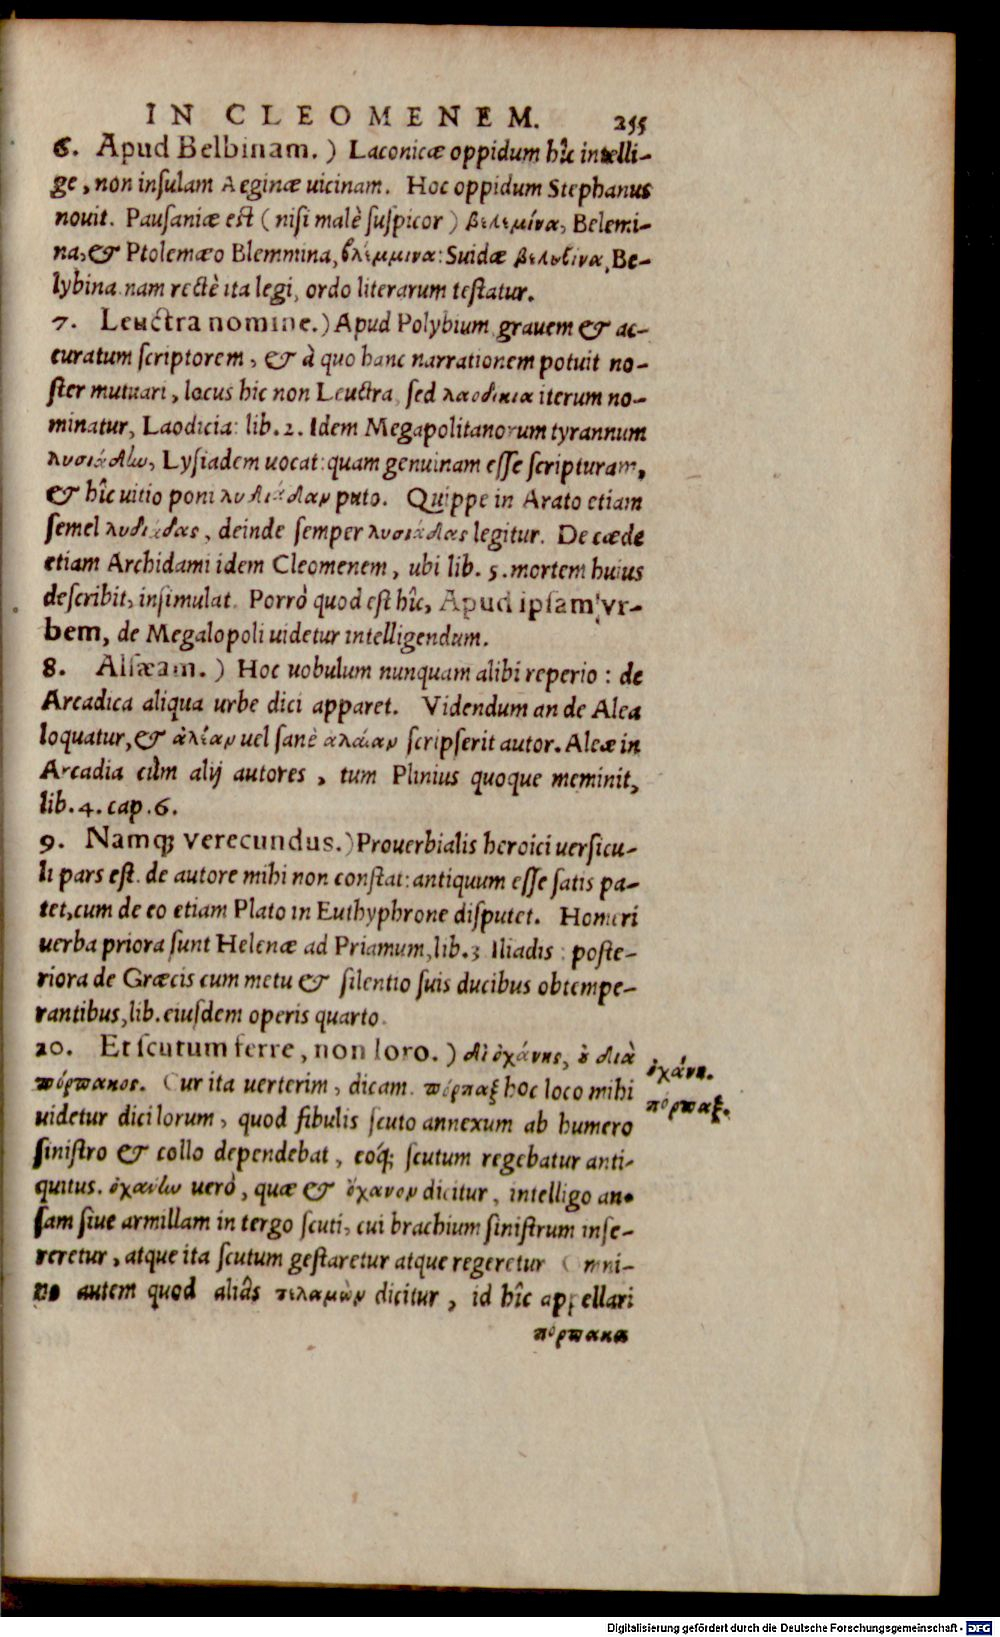 IN CLEOMENEM. 255
6. Apud Belbinam.) Laconicæ oppidum hîc intelli-
ge, non insulam Aeginæ uicinam. Hoc oppidum Stephanus
nouit. Pausaniæ est (nisi malè suspicor) βελεμίνα, Belemi-
na, & Ptolemæo Blemmina, βλέμμινα: Suidæ βελυβίνα, Be-
lybina. nam rectè ita legi, ordo literarum testatur.
7. Leuctra nomine.) Apud Polybium, grauem & ac-
curatum scriptorem, & à quo hanc narrationem potuit no-
ster mutuari, locus hic non Leuctra, sed λαοδικια iterum no-
minatur, Laodicia: lib. 2. Idem Megapolitanorum tyrannum
λυσιάδην, Lysiadem uocat: quam genuinam esse scripturam,
& hîc uitio poni λυδιάδαν puto. Quippe in Arato etiam
semel λυδιάδας, deinde semper λυσιάδας legitur. De cæde
etiam Archidami idem Cleomenem, ubi lib. 5. mortem huius
describit, insimulat. Porrò quod est hîc, Apud ipsam vr-
bem, de Megalopoli uidetur intelligendum.
8. Alsæam.) Hoc uobulum nunquam alibi reperio: de
Arcadica aliqua urbe dici apparet. Videndum an de Alea
loquatur, & ἀλέαν uel sanè ἀλαίαν scripserit autor. Aleæ in
Arcadia cùm alij autores, tum Plinius quoque meminit,
lib. 4. cap. 6.
9. Namq; verecundus.) Prouerbialis heroici uersicu-
li pars est. de autore mihi non constat: antiquum esse satis pa-
tet, cum de eo etiam Plato in Euthyphrone disputet. Homeri
uerba priora sunt Helenæ ad Priamum, lib. 3 Iliadis: poste-
riora de Græcis cum metu & silentio suis ducibus obtempe-
rantibus, lib. eiusdem operis quarto.
20. Et scutum ferre, non loro.) δι' ὀχάνης, ὀ διὰ
πόρπακος. Cur ita uerterim, dicam. πόρπαξ hoc loco mihi
uidetur dici lorum, quod fibulis scuto annexum ab humero
sinistro & collo dependebat, eóq; scutum regebatur anti-
quitus. ὀχανὴν uerò, quæ & ὄχανον dicitur, intelligo an-
sam siue armillam in tergo scuti, cui brachium sinistrum inse-
reretur, atque ita scutum gestaretur atque regeretur Omni-
no autem quod aliàs τελαμὼν dicitur, id hîc appellari
πόρπακα
ὀχάνη.
πόρπαξ.
Digitalisierung gefördert durch die Deutsche Forschungsgemeinschaft - DFG